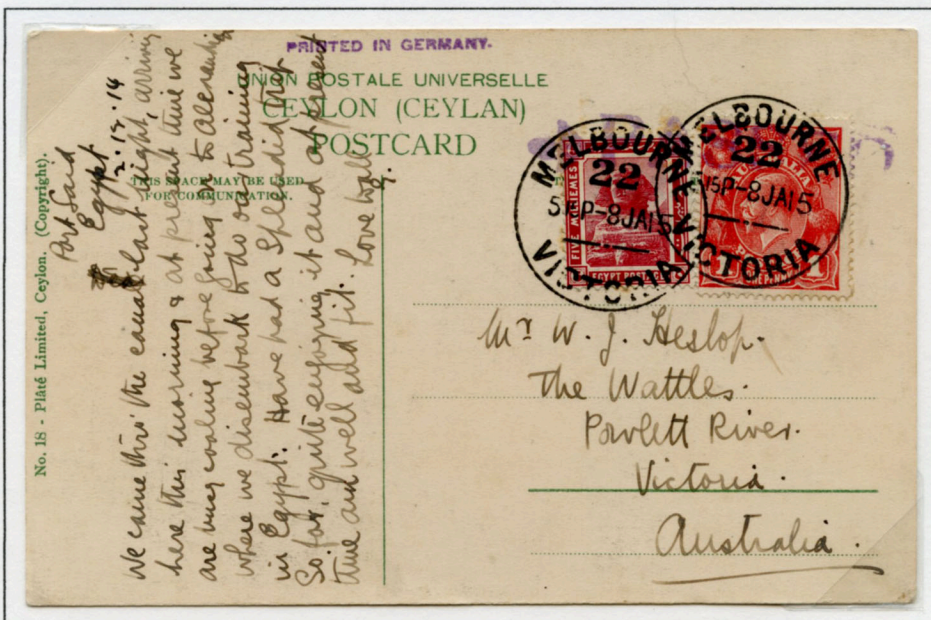 PRINTED IN GERMANY.
UNION POSTALE UNIVERSELLE
CEYLON (CEYLAN)
POSTCARD
THIS SPACE MAY BE USED
FOR COMMUNICATION.
No. 18 - Plâté Limited, Ceylon. (Copyright).
Port Said
Egypt
2.12.14
We came thro' the canal last night, arriving
here this morning & at present time we
are busy coaling before going on to Alexandria
where we disembark to do our training
in Egypt. Have had a splendid trip
so far, quite enjoying it and at present
time am well and fit. Love to all
MELBOURNE
22
P-8JA15
VICTORIA
FIVE MILLIEMES
EGYPT POSTAGE
MELBOURNE
22
15P-8JA15
VICTORIA
AUSTRALIA
ONE PENNY
Mr W. J. Heslop.
The Wattles.
Powlett River.
Victoria.
Australia.